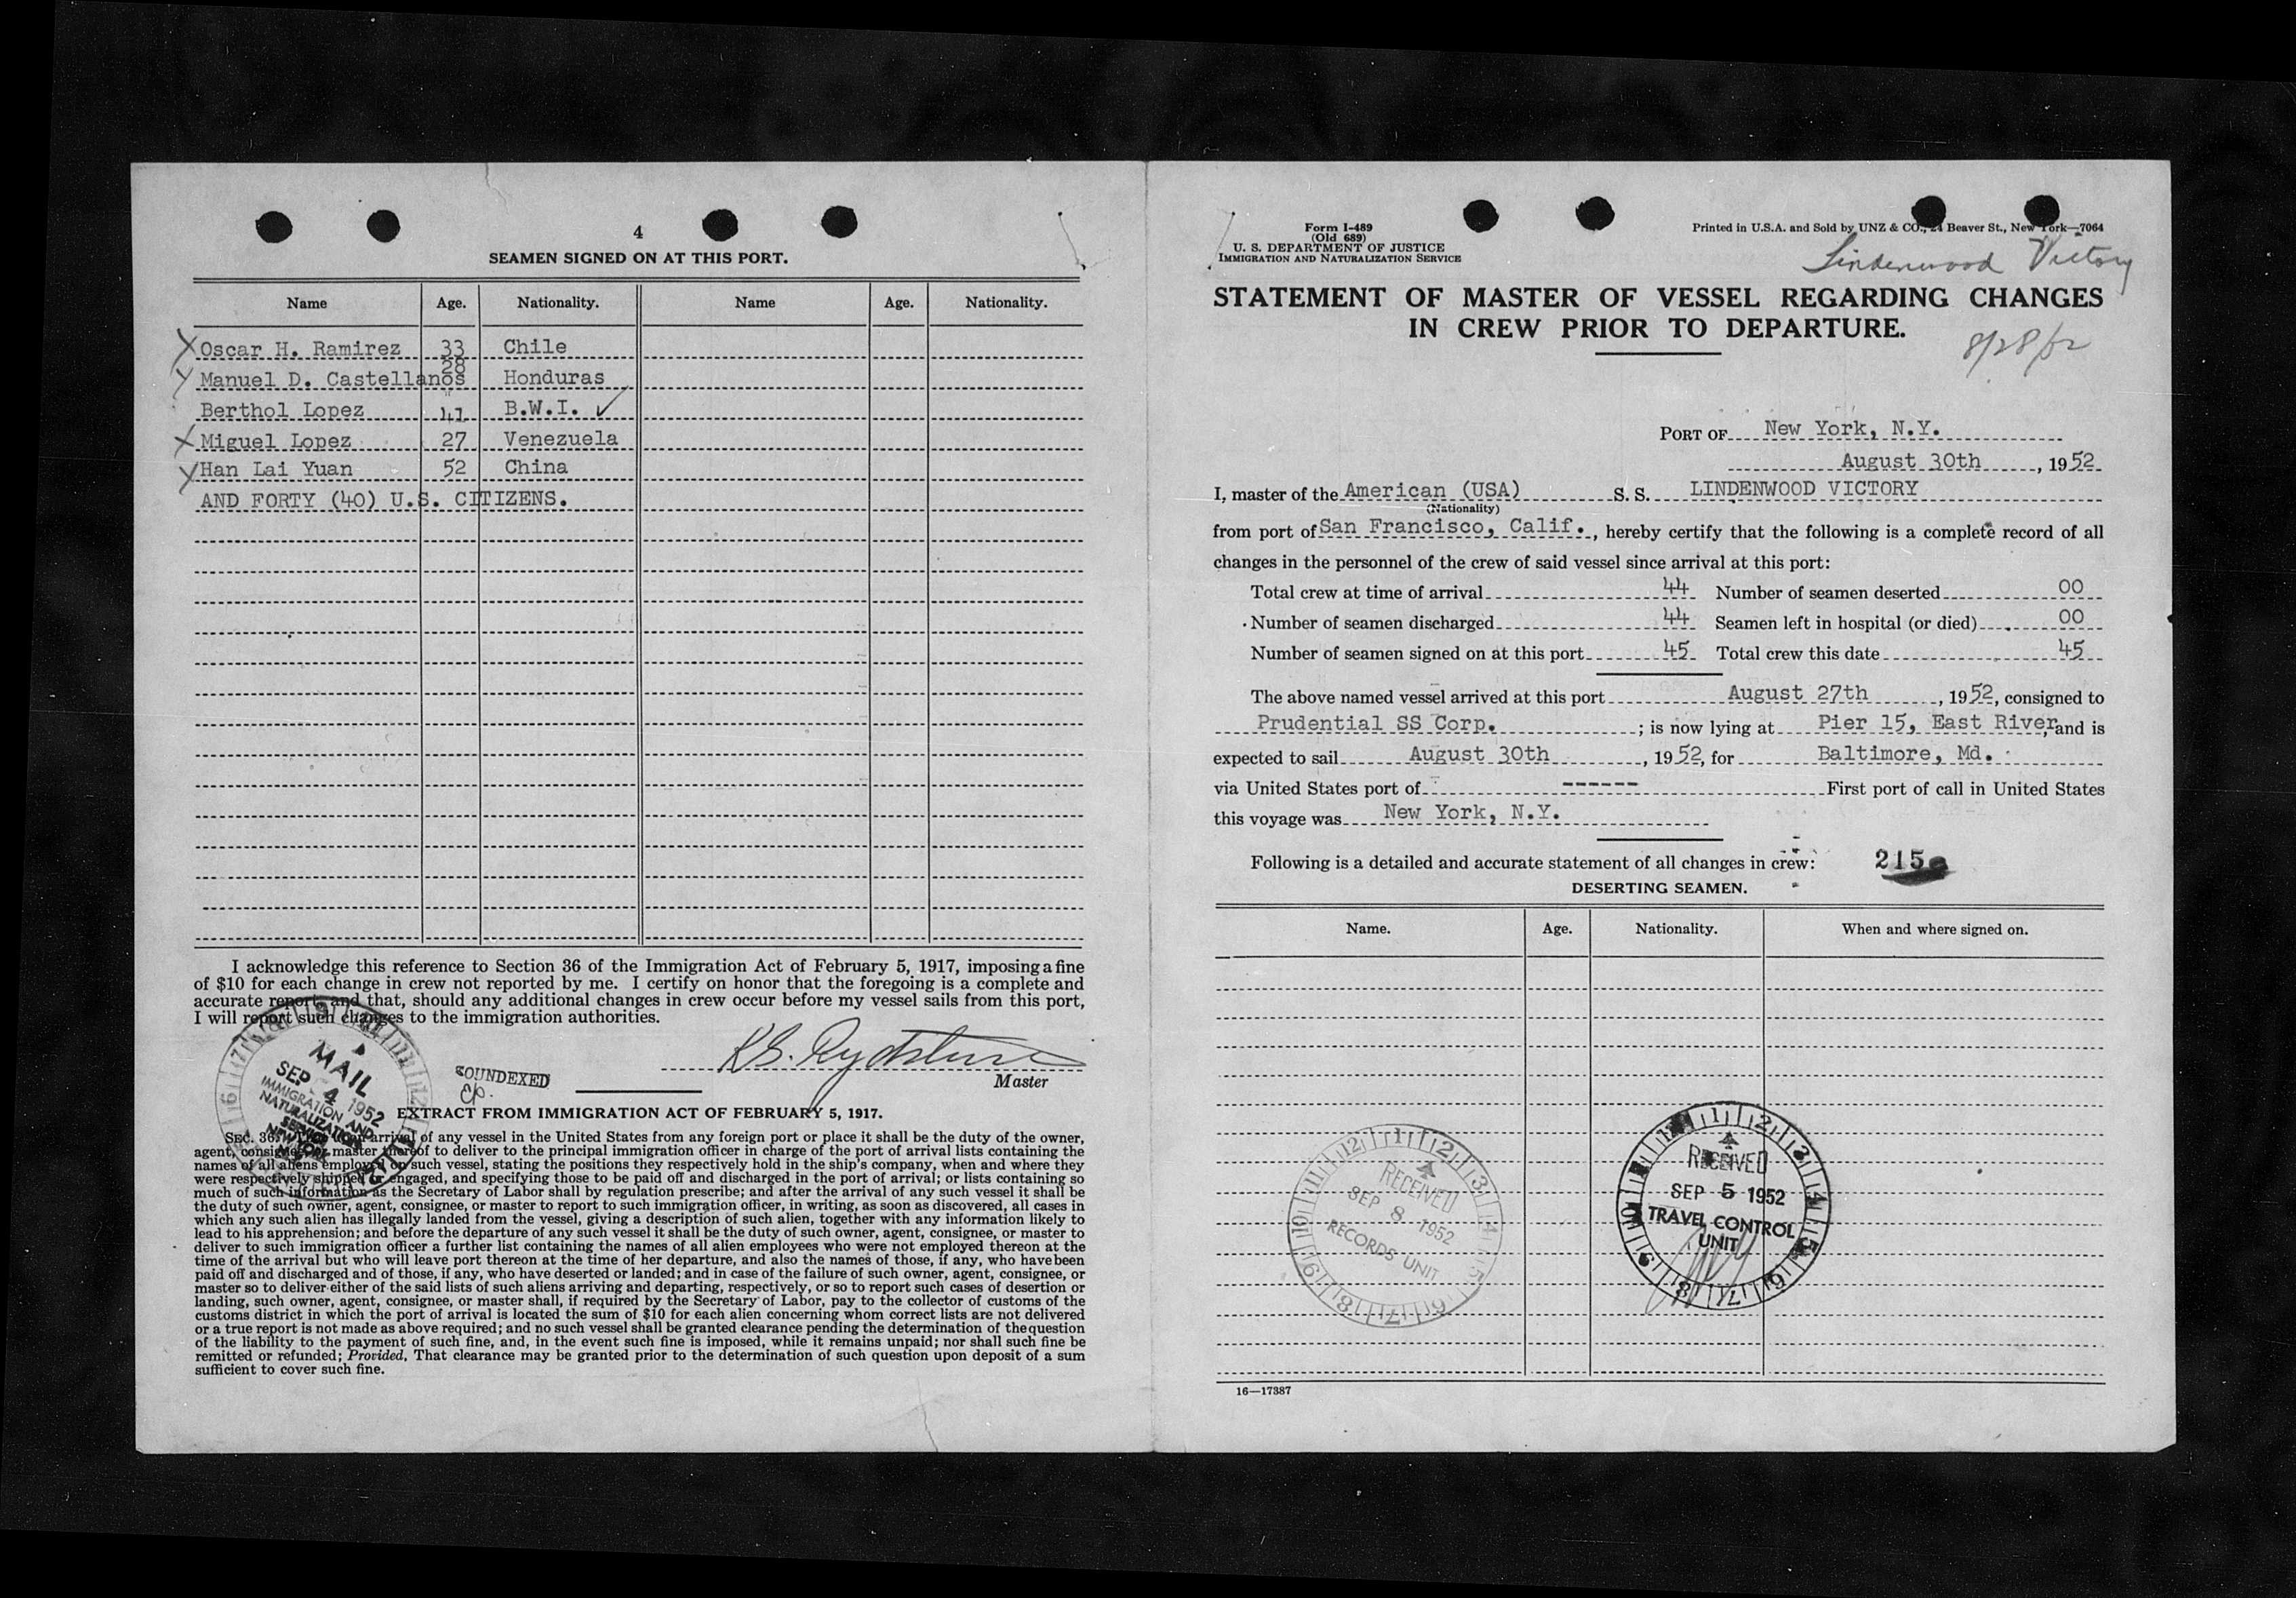 4
SEAMEN SIGNED ON AT THIS PORT.
Name Age. Nationality. Name Age. Nationality.
Oscar H. Ramirez 33 Chile
Manuel D. Castellanos 28 Honduras
Berthol Lopez 41 B.W.I. ✓
Miguel Lopez 27 Venezuela
Han Lai Yuan 52 China
AND FORTY (40) U.S. CITIZENS.
I acknowledge this reference to Section 36 of the Immigration Act of February 5, 1917, imposing a fine
of $10 for each change in crew not reported by me. I certify on honor that the foregoing is a complete and
accurate report, and that, should any additional changes in crew occur before my vessel sails from this port,
I will report such changes to the immigration authorities.
Master
MAIL
SEP 4 1952
IMMIGRATION AND
NATURALIZATION
SERVICE
NEW YORK
SOUNDEXED
EXTRACT FROM IMMIGRATION ACT OF FEBRUARY 5, 1917.
SEC. 36. arrival of any vessel in the United States from any foreign port or place it shall be the duty of the owner,
agent, consignee, or master thereof to deliver to the principal immigration officer in charge of the port of arrival lists containing the
names of all aliens employed on such vessel, stating the positions they respectively hold in the ship's company, when and where they
were respectively shipped or engaged, and specifying those to be paid off and discharged in the port of arrival; or lists containing so
much of such information as the Secretary of Labor shall by regulation prescribe; and after the arrival of any such vessel it shall be
the duty of such owner, agent, consignee, or master to report to such immigration officer, in writing, as soon as discovered, all cases in
which any such alien has illegally landed from the vessel, giving a description of such alien, together with any information likely to
lead to his apprehension; and before the departure of any such vessel it shall be the duty of such owner, agent, consignee, or master to
deliver to such immigration officer a further list containing the names of all alien employees who were not employed thereon at the
time of the arrival but who will leave port thereon at the time of her departure, and also the names of those, if any, who have been
paid off and discharged and of those, if any, who have deserted or landed; and in case of the failure of such owner, agent, consignee, or
master so to deliver either of the said lists of such aliens arriving and departing, respectively, or so to report such cases of desertion or
landing, such owner, agent, consignee, or master shall, if required by the Secretary of Labor, pay to the collector of customs of the
customs district in which the port of arrival is located the sum of $10 for each alien concerning whom correct lists are not delivered
or a true report is not made as above required; and no such vessel shall be granted clearance pending the determination of the question
of the liability to the payment of such fine, and, in the event such fine is imposed, while it remains unpaid; nor shall such fine be
remitted or refunded; Provided, That clearance may be granted prior to the determination of such question upon deposit of a sum
sufficient to cover such fine.
Form I-489
(Old 689)
U. S. DEPARTMENT OF JUSTICE
IMMIGRATION AND NATURALIZATION SERVICE
Printed in U.S.A. and Sold by UNZ & CO., 24 Beaver St., New York—7064
Lindenwood Victory
STATEMENT OF MASTER OF VESSEL REGARDING CHANGES
IN CREW PRIOR TO DEPARTURE.
8/28/52
PORT OF New York, N.Y.
August 30th, 1952
I, master of the American (USA) S. S. LINDENWOOD VICTORY
(Nationality)
from port of San Francisco, Calif., hereby certify that the following is a complete record of all
changes in the personnel of the crew of said vessel since arrival at this port:
Total crew at time of arrival 44 Number of seamen deserted 00
Number of seamen discharged 44 Seamen left in hospital (or died) 00
Number of seamen signed on at this port 45 Total crew this date 45
The above named vessel arrived at this port August 27th, 1952, consigned to
Prudential SS Corp. ; is now lying at Pier 15, East River, and is
expected to sail August 30th, 1952, for Baltimore, Md.
via United States port of ------ First port of call in United States
this voyage was New York, N.Y.
Following is a detailed and accurate statement of all changes in crew: 215
DESERTING SEAMEN.
Name. Age. Nationality. When and where signed on.
RECEIVED
SEP 8 1952
RECORDS UNIT
RECEIVED
SEP 5 1952
TRAVEL CONTROL
UNIT
16—17387